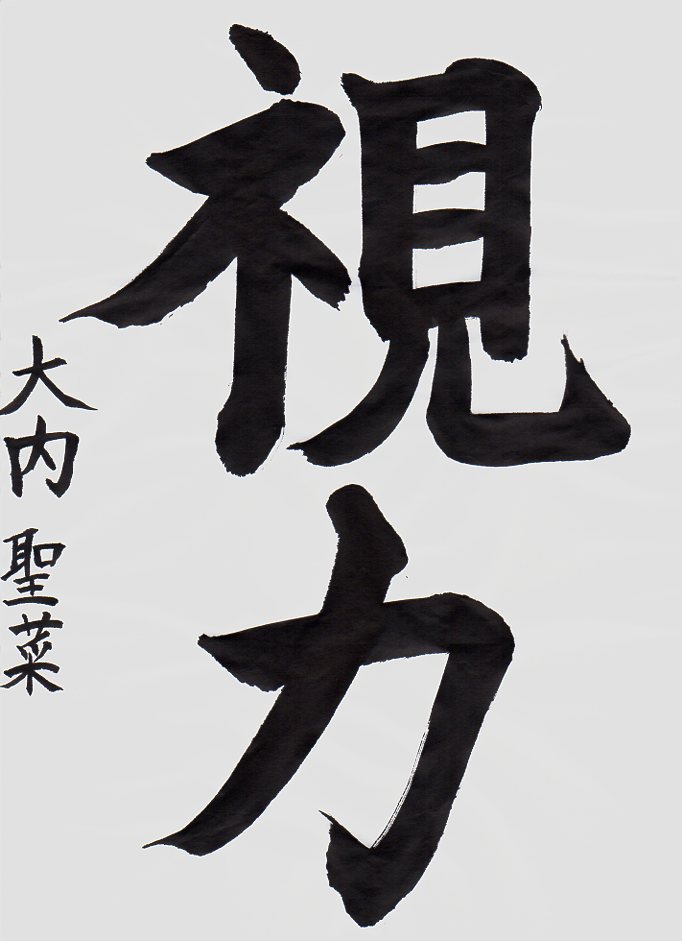 視力
大内 聖菜